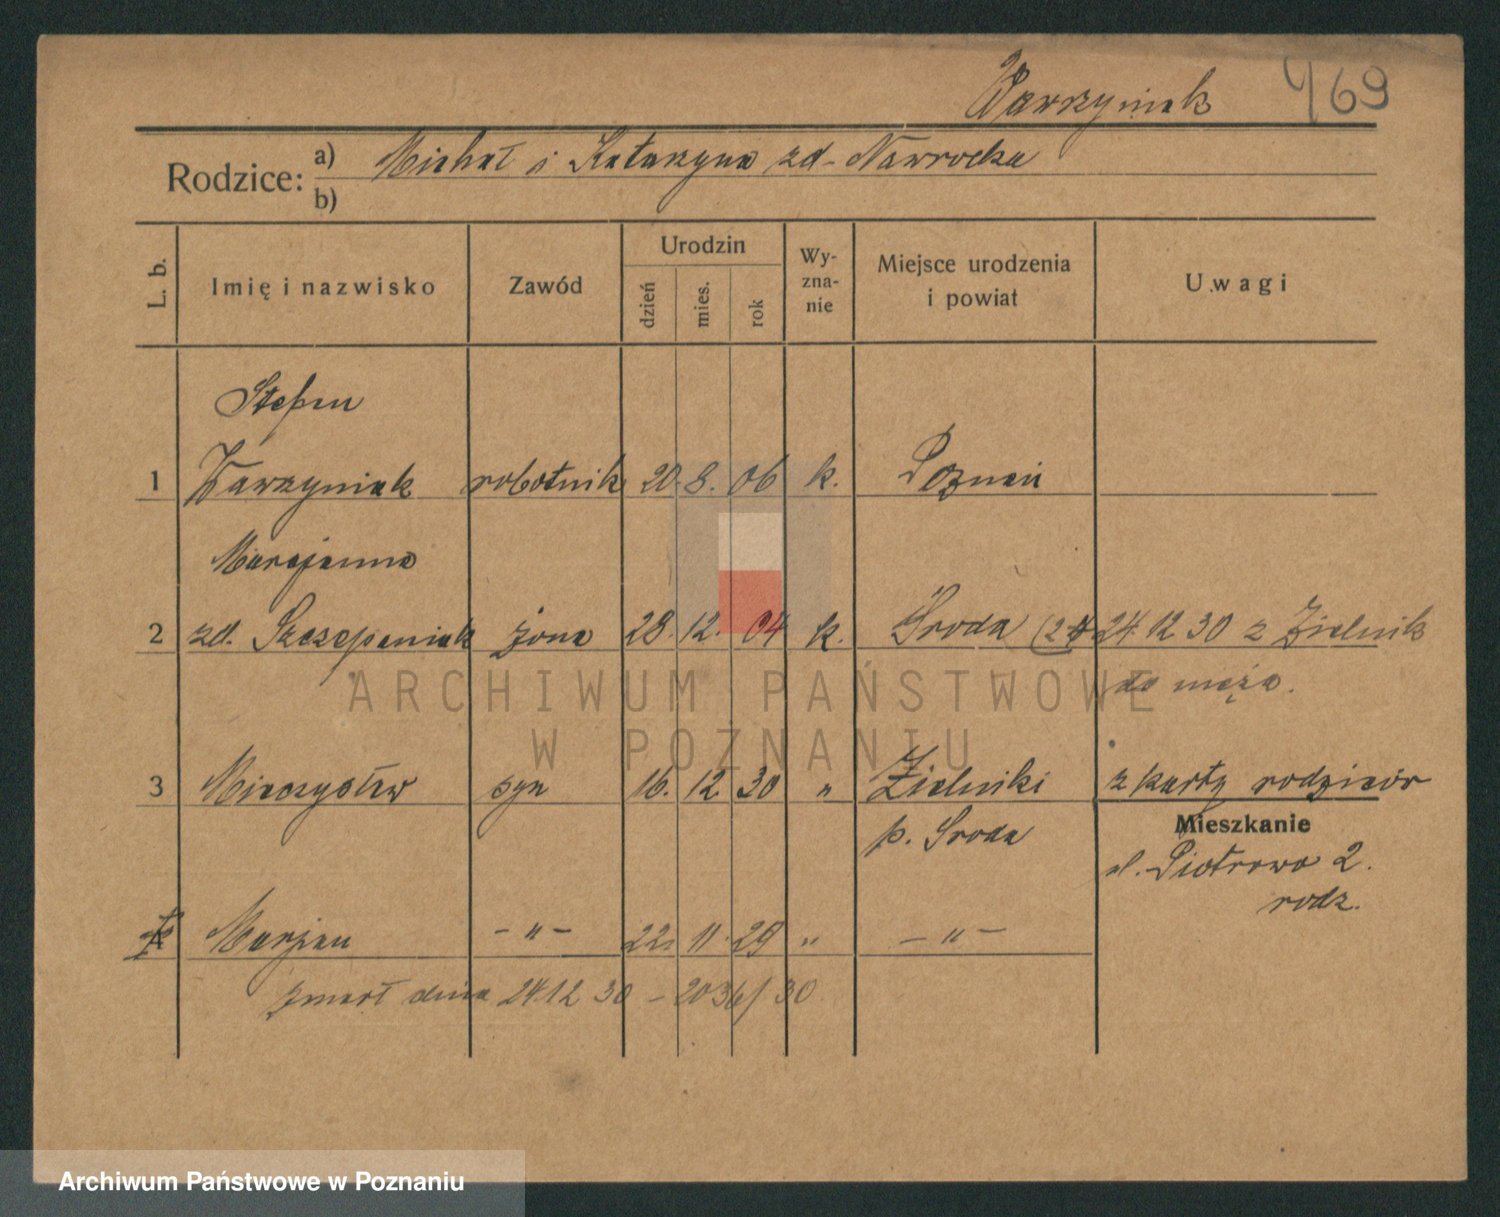 Warzyniak 469
Rodzice: a) Michał i Katarzyna zd. Nawrocka
b)
L. b. Imię i nazwisko Zawód Urodzin dzień mies. rok Wy-zna-nie Miejsce urodzenia i powiat Uwagi
Stefan
1 Warzyniak robotnik 20. 8. 06 k. Poznań
Marjanna
2 zd. Szczepaniak żona 28. 12. 04 k. Środa 24.12 30 z Zielnik
do męża.
3 Mieczysław syn 16. 12 30 " Zielniki z karty rodziców
p. Środa
Mieszkanie
ul. Piotrowo 2.
rodz.
Marjan - " - 22. 11. 29 " - " -
zmarł dnia 24 12 30 - 2036/30
ARCHIWUM PAŃSTWOWE
W POZNANIU
Archiwum Państwowe w Poznaniu